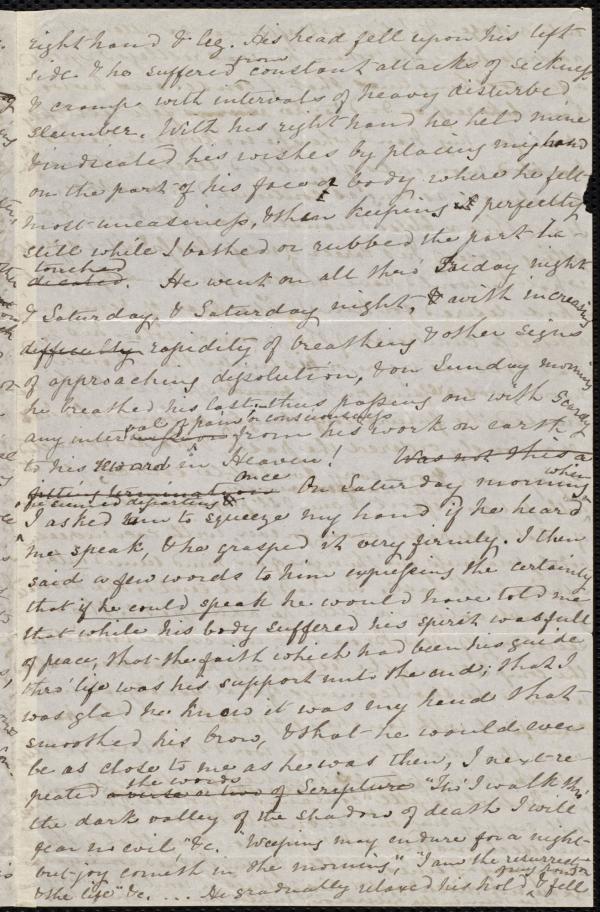 right hand & leg. His head fell upon his left
side & he suffered from constant attacks of sickness
& cramp with intervals of heavy disturbed
slumber. With his right hand he held mine
& indicated his wishes by placing my hand
on the part of his face or body where he felt
most uneasiness, & then keeping it perfectly
still while I bathed or rubbed the part he
touched
dicated. He went on all thro' Friday night
& Saturday, & Saturday night, & with increasing
difficulty rapidity of breathing & other signs
of approaching dissolution, & on Sunday morning
he breathed his last, thus passing on with scarcely
val of pain or consciousness
any inter from his work on earth
to his reward in Heaven! Was not this a
fitting termination once On Saturday morning when
he seemed departing &
I asked him to squeeze my hand if he heard
me speak, & he grasped it very firmly. I then
said a few words to him expressing the certainty
that if he could speak he would have told me
that while his body suffered his spirit was full
of peace, that the faith which had been his guide
thro' life was his support unto the end; that I
was glad he knew it was my hand that
smoothed his brow, & that he would ever
be as close to me as he was then, I next re-
the words
peated a verse or two of Scripture "Tho' I walk thro'
the dark valley of the shadow of death I will
fear no evil," &c. "Weeping may endure for a night
but joy cometh in the morning", "I am the resurrection
& the life" &c. ... He gradually relaxed his hold, & fell